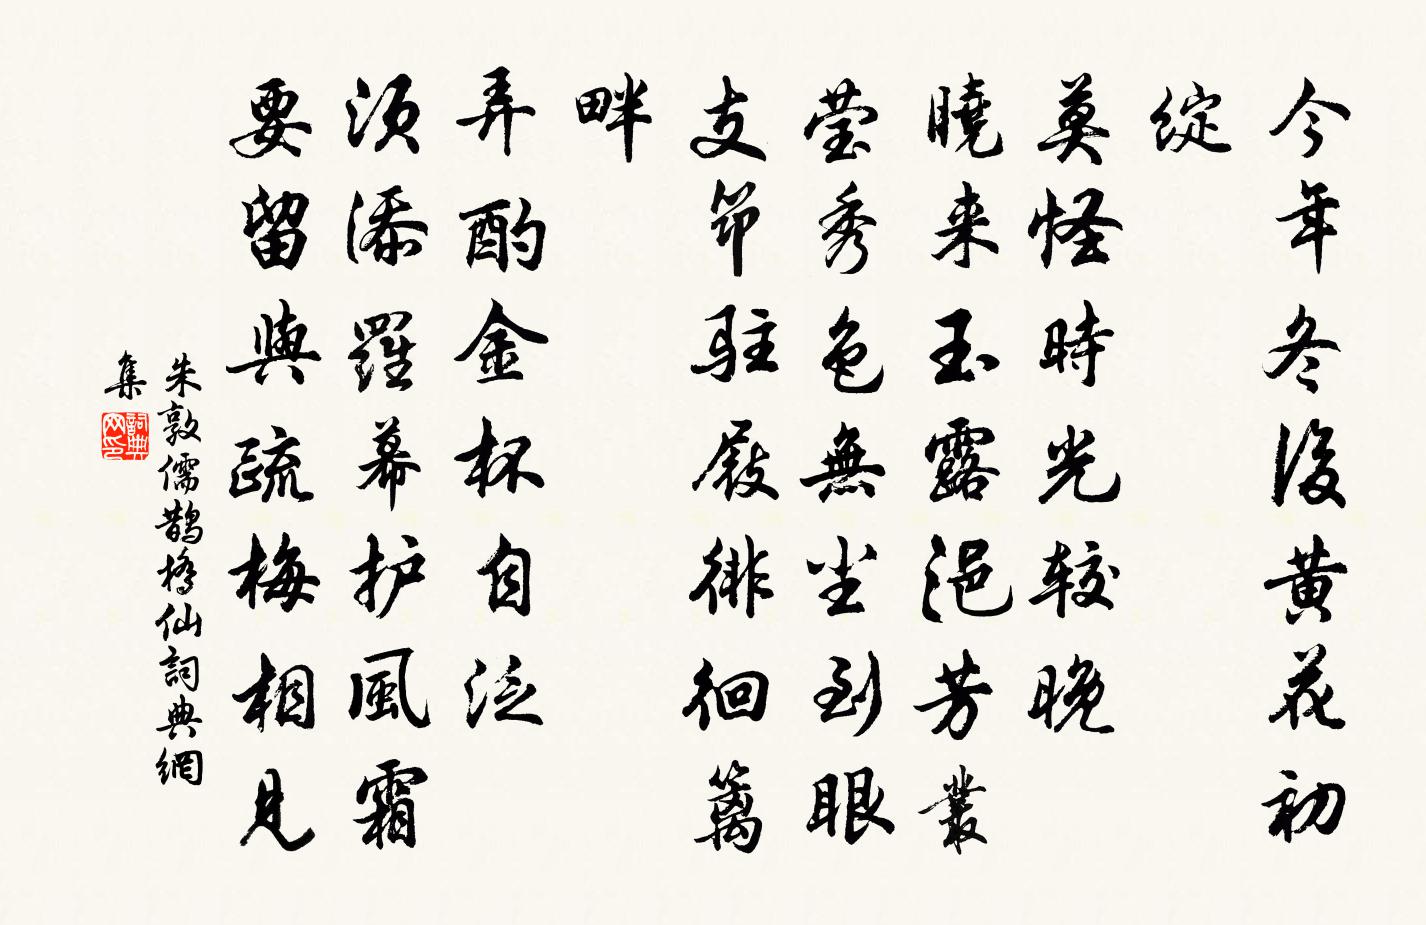 今年冬後黄花初
綻
莫怪時光較晚
曉来玉露浥芳叢
莹秀色無尘到眼
支笻駐屐徘徊篱
畔
弄酌金杯自泛
須添羅幕护風霜
要留與疏梅相見
朱敦儒鹊橋仙詞典網
集
詞典网印